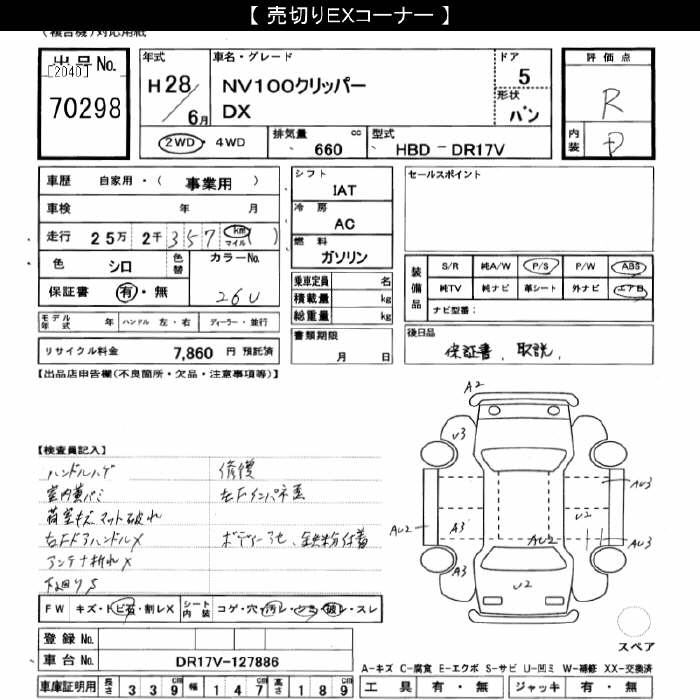 【 売切りEXコーナー 】
(複合機)対応用紙
出品No.
[2040]
70298
年式
H28/6月
車名・グレード
NV100クリッパー
DX
ドア
5
形状
バン
評価点
R
内装
D
2WD・4WD
排気量 660 cc
型式 HBD-DR17V
車歴 自家用・( 事業用 )
車検 年 月
走行 25万 2千 357 km マイル ( )
色 シロ
色替
カラーNo.
26U
保証書 有・無
シフト
IAT
冷房
AC
燃料
ガソリン
セールスポイント
装備品
S/R 純A/W P/S P/W ABS
純TV 純ナビ 革シート 外ナビ エアB
ナビ型番:
乗車定員 名
積載量 kg
総重量 kg
モデル年式 年 ハンドル 左・右 ディーラー・並行
リサイクル料金 7,860 円 預託済
書類期限
月 日
後日品
保証書、取説、
【出品店申告欄(不良箇所・欠品・注意事項等)】
【検査員記入】
ハンドルハゲ
室内黄バミ
荷室キズ マット破れ
右Fドアハンドル X
アンテナ折れ X
下回りS
修復
右Fインパネ歪
ボディー色アセ、鉄粉付着
A2
U3
AU3
U2
AU2
A3
AU2
AU3
A3
U2
スペア
FW キズ・トビ石・割レX
シート内装 コゲ・穴・汚レ・シミ・破レ・スレ
登録 No.
車台 No. DR17V-127886
車庫証明用 長さ 339cm 幅 147cm 高さ 189cm
A-キズ C-腐食 E-エクボ S-サビ U-凹ミ W-補修 XX-交換済
工具 有・無 ジャッキ 有・無